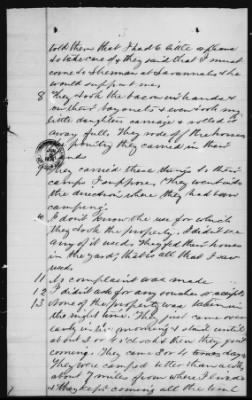 told them that I had 6 little
to take care of & they said that I must
come to Sherman at Savannah & he
would support me.
8 They took the bacon in hands &
on their bayonets & even took my
little daughters carriage & rolled it
away full. They rode off the horses
poultry they carried in their
hands
They carried these things to their
camps I suppose. They went into
the direction where they had been
camping.
I don't know the use for which
they took the property. I didn't see
any of it used. They fed their horses
in the yard; that is all that I saw
used.
11 No complaint was made
12 I didn't ask for any voucher or receipts
13 None of the property was taken in
the night time. They just came over
early in the morning & staid until
about 3 or 4 o'clock then they quit
coming. They came 3 or 4 days
They were camped better than
about 7 miles from where I lived
& they kept coming all the time